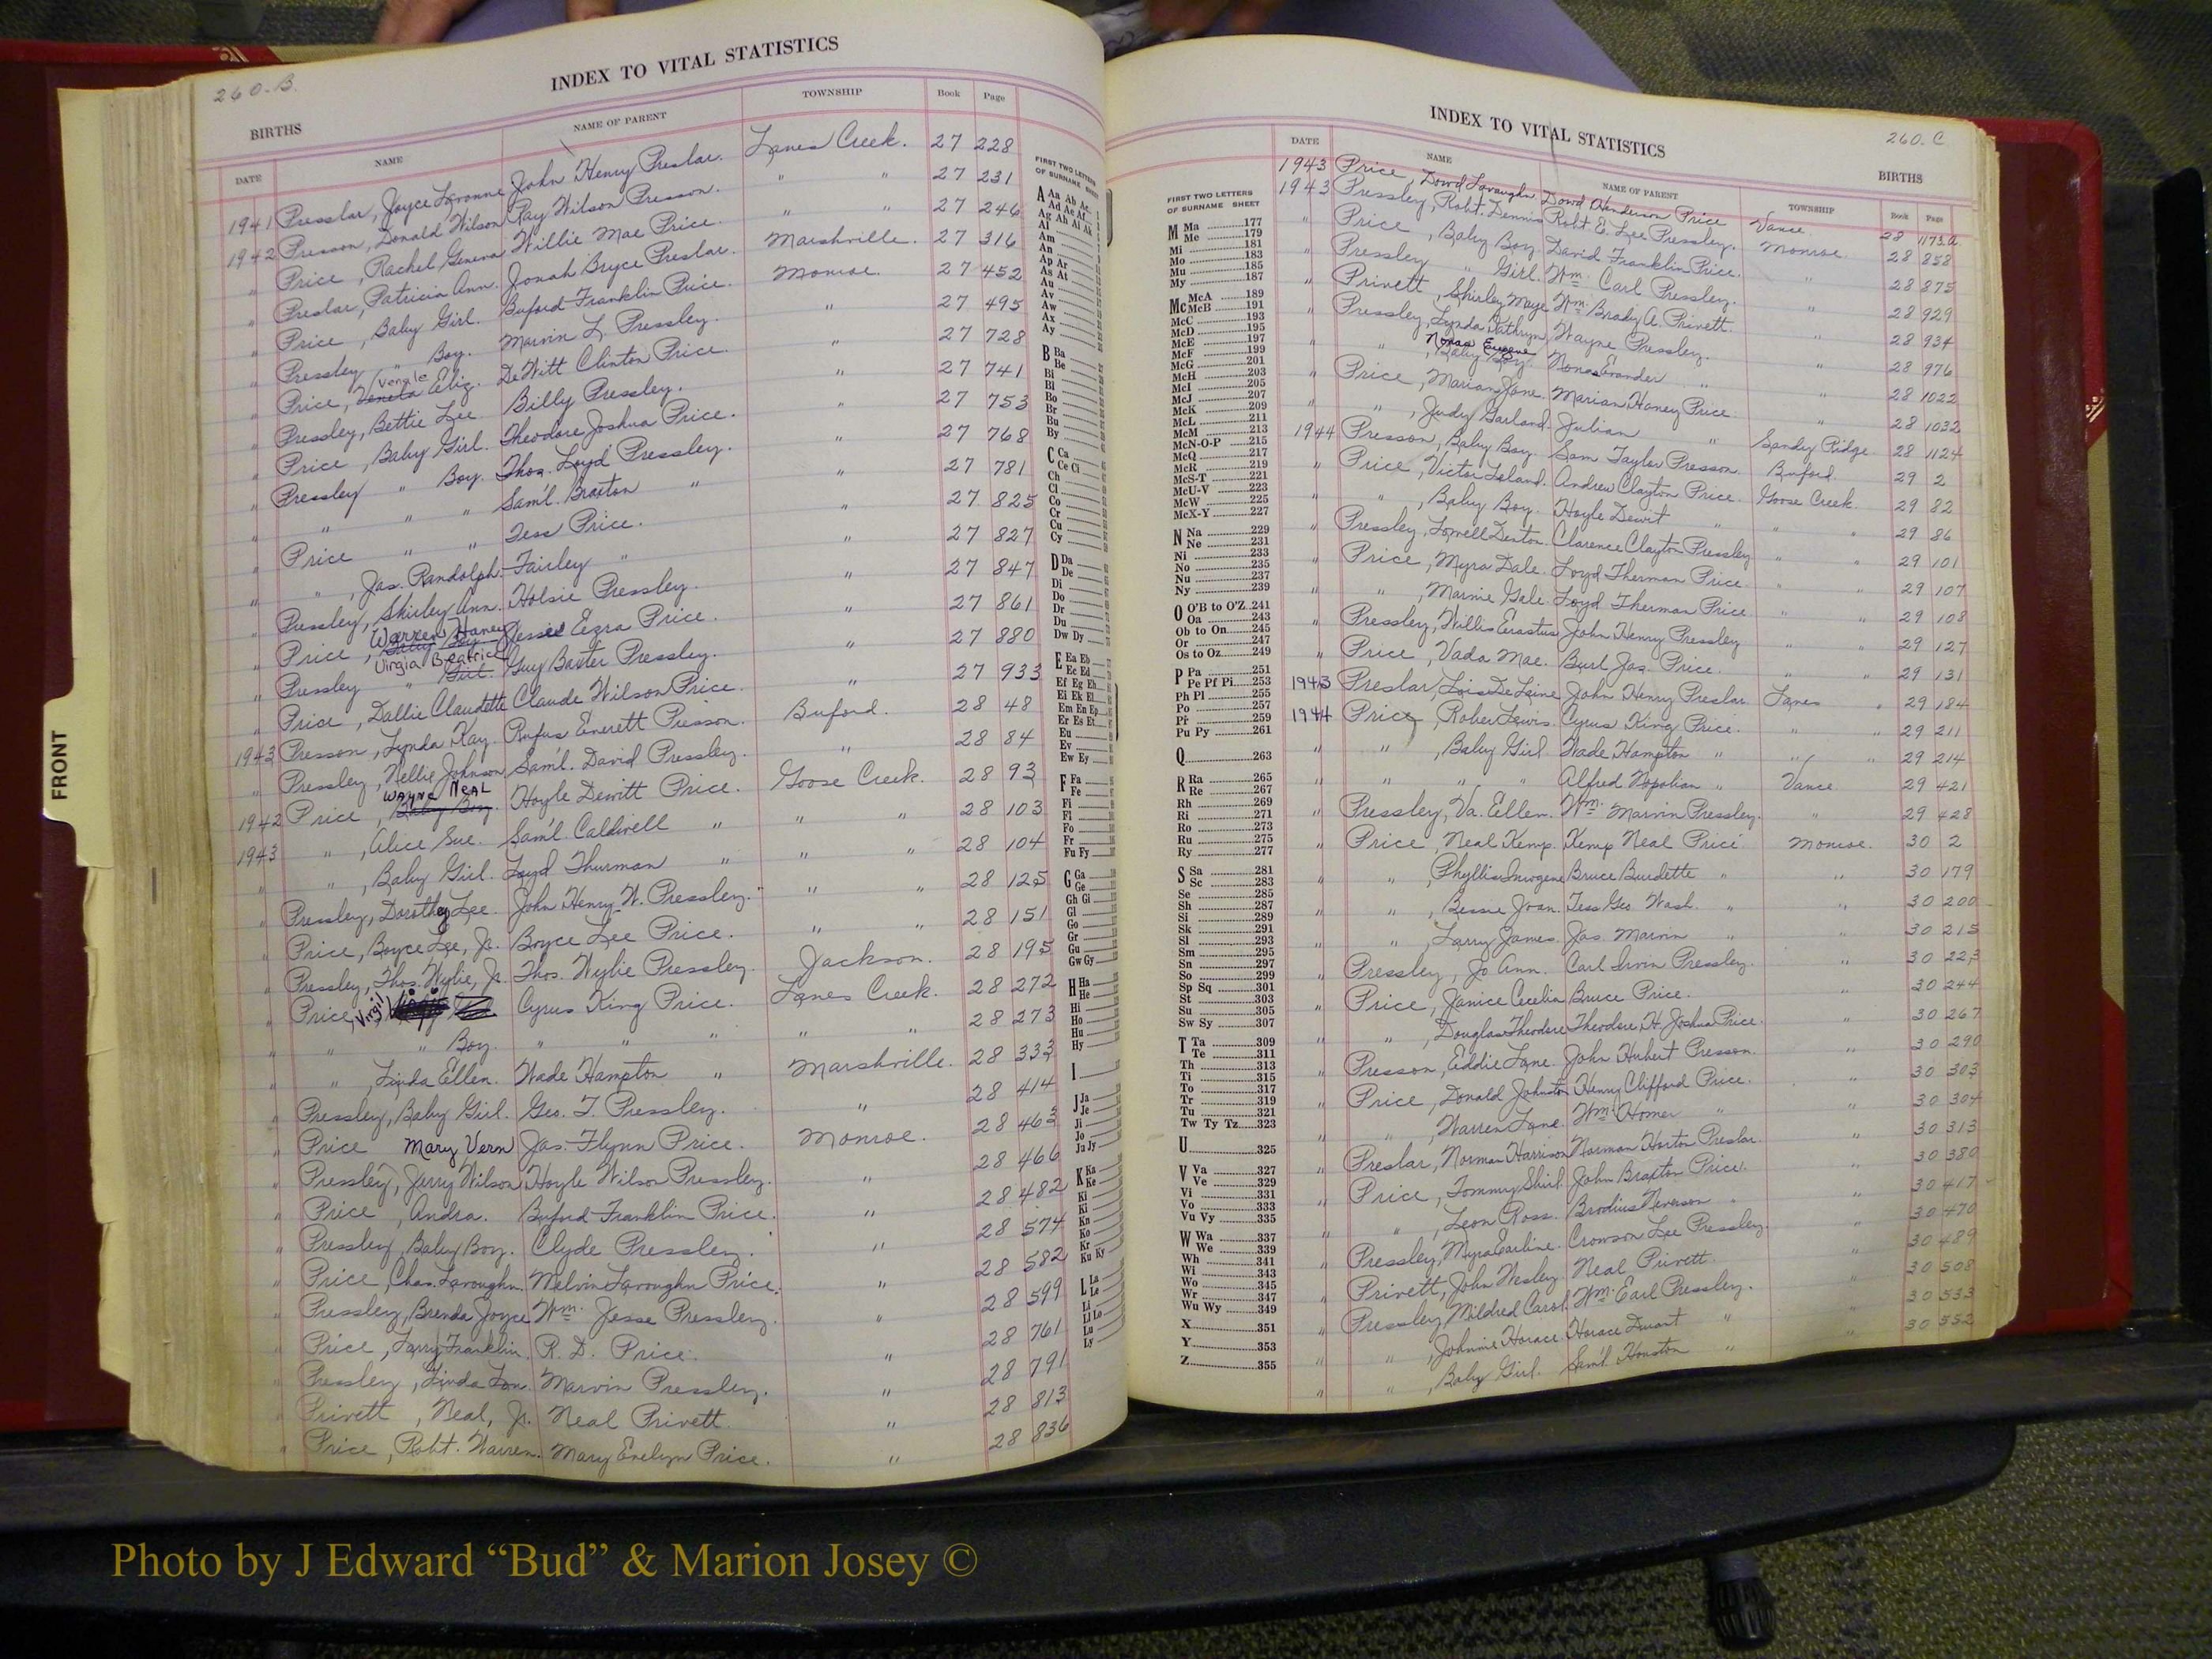 260-B.
INDEX TO VITAL STATISTICS
BIRTHS
DATE NAME NAME OF PARENT TOWNSHIP Book Page
1941 Presslar, Joyce Lavonne John Henry Preslar. Lanes Creek. 27 228
1942 Presson, Donald Wilson Ray Wilson Presson. " " 27 231
" Price, Rachel Geneva Willie Mae Price. " " 27 246
" Preslar, Patricia Ann. Jonah Bryce Preslar. Marshville. 27 316
" Price, Baby Girl. Buford Franklin Price. Monroe. 27 452
" Pressley " Boy. Marvin L. Pressley. " 27 495
" Price, Eliz. DeWitt Clinton Price. " 27 728
" Pressley, Bettie Lee Billy Pressley. " 27 741
" Price, Baby Girl. Theodore Joshua Price. " 27 753
" Pressley " Boy. Thos. Loyd Pressley. " 27 768
" " " " Sam'l. Braxton " " 27 781
" Price " " Tess Price. " 27 825
" " , Jas. Randolph. Fairley " " 27 827
" Pressley, Shirley Ann. Holsie Pressley. " 27 847
" Price, Warren Haney Jessie Ezra Price. " 27 861
" Pressley " Virgia Beatrice Girl. Guy Baxter Pressley. " 27 880
" Price, Dallie Claudette Claude Wilson Price. " 27 933
1943 Presson, Lynda Kay. Rufus Everett Presson. Buford. 28 48
" Pressley, Nellie Johnson Sam'l. David Pressley. " 28 84
1942 Price, WAYNE NEAL Baby Boy Hoyle Dewitt Price. Goose Creek. 28 93
1943 " , Alice Sue. Sam'l. Caldwell " " " 28 103
" " , Baby Girl. Loyd Thurman " " " 28 104
" Pressley, Dorothy Lee. John Henry W. Pressley. " " 28 125
" Price, Boyce Lee, Jr. Boyce Lee Price. " " 28 151
" Pressley, Thos. Wylie, Jr. Thos. Wylie Pressley. Jackson. 28 195
" Price, Cyrus King Price. Lanes Creek. 28 272
" " " Boy. " " " " " 28 273
" " , Linda Ellen. Wade Hampton " Marshville. 28 333
" Pressley, Baby Girl. Geo. T. Pressley. " 28 414
" Price Mary Vern Jas. Flynn Price. Monroe. 28 463
" Pressley, Jerry Wilson Hoyle Wilson Pressley. " 28 466
" Price, Andra. Buford Franklin Price. " 28 482
" Pressley, Baby Boy. Clyde Pressley. " 28 574
" Price, Chas. Lavoughn. Melvin Lavoughn Price. " 28 582
" Pressley, Brenda Joyce Wm. Jesse Pressley. " 28 599
" Price, Larry Franklin. R. D. Price. " 28 761
" Pressley, Linda Lou. Marvin Pressley. " 28 791
" Privett, Neal, Jr. Neal Privett. " 28 813
" Price, Robt. Warren. Mary Evelyn Price. " 28 836
FIRST TWO LETTERS
OF SURNAME SHEET
A Aa Ab Ac
Ad Ae Af
Ag Ah Ai Ak
Al
Am
An
Ap Ar
As At
Au
Av
Aw
Ax
Ay
B Ba
Be
Bi
Bl
Bo
Br
Bu
By
C Ca
Ce Ci
Ch
Cl
Co
Cr
Cu
Cy
D Da
De
Di
Do
Dr
Du
Dw Dy
E Ea Eb
Ec Ed
Ef Eg Eh
Ei Ek El
Em En Ep
Er Es Et
Eu
Ev
Ew Ey
F Fa
Fe
Fi
Fl
Fo
Fr
Fu Fy
G Ga
Ge
Gh Gi
Gl
Go
Gr
Gu
Gw Gy
H Ha
He
Hi
Ho
Hu
Hy
I
J Ja
Je
Ji
Jo
Ju Jy
K Ka
Ke
Ki
Kl
Kn
Ko
Kr
Ku Ky
L La
Le
Li
Ll Lo
Lu
Ly
INDEX TO VITAL STATISTICS
260. C
BIRTHS
DATE NAME NAME OF PARENT TOWNSHIP Book Page
1943 Price, Dowd Lavaughn Dowd Henderson Price Vance. 28 1173a
1943 Pressley, Robt. Dennis Robt. E. Lee Pressley. Monroe 28 858
" Price, Baby Boy. David Franklin Price. " 28 875
" Pressley " Girl. Wm. Carl Pressley. " 28 929
" Privett, Shirley Maye Wm. Brady A. Privett. " 28 934
" Pressley, Lynda Kathryn Wayne Pressley. " 28 976
" " , Baby Boy. Nonas Eugene Nonas Evander " " 28 1022
" Price, Marian Jane. Marian Haney Price. " 28 1032
" " , Judy Garland. Julian " Sandy Ridge 28 1124
1944 Presson, Baby Boy. Sam Taylor Presson. Buford. 29 2
" Price, Victor Leland. Andrew Clayton Price. Goose Creek. 29 82
" " , Baby Boy. Hoyle Dewit " " " 29 86
" Pressley, Lowell Denton. Clarence Clayton Pressley " " 29 101
" Price, Myra Dale. Loyd Therman Price " " 29 107
" " , Marnie Gale. Loyd Therman Price. " " 29 108
" Pressley, Willis Erastus John Henry Pressley " " 29 127
" Price, Vada Mae. Burl Jas. Price. " " 29 131
1943 Preslar, Lois DeLaine John Henry Preslar. Lanes " 29 184
1944 Price, Rober Lewis. Cyrus King Price. " " 29 211
" " , Baby Girl. Wade Hampton " " " 29 214
" " " " Alfred Napolian " Vance 29 421
" Pressley, Va. Ellen. Wm. Marvin Pressley. " 29 428
" Price, Neal Kemp. Kemp Neal Price Monroe. 30 2
" " , Phyllis Imogene Bruce Burdette " " 30 179
" " , Bessie Joan. Tess Geo. Wash. " " 30 200
" " , Larry James. Jas. Marvin " " 30 215
" Pressley, Jo Ann. Carl Irvin Pressley. " 30 223
" Price, Janice Cecelia Bruce Price. " 30 244
" " , Douglas Theodore Theodore H. Joshua Price. " 30 267
" Presson, Eddie Lane. John Hubert Presson. " 30 290
" Price, Donald Johnston Henry Clifford Price. " 30 303
" " , Warren Lane. Wm. Homer " " 30 304
" Preslar, Norman Harrison Norman Horton Preslar. " 30 313
" Price, Tommy Shirl. John Braxton Price. " 30 380
" " , Leon Ross. Brodius " " 30 417
" Pressley, Myra Earline. Crowson Lee Pressley. " 30 470
" Privett, John Wesley. Neal Privett. " 30 489
" Pressley Mildred Carol. Wm. Earl Pressley. " 30 508
" " , Johnnie Horace. Horace " " 30 533
" " , Baby Girl. Sam'l. Houston " " 30 552
FIRST TWO LETTERS
OF SURNAME SHEET
M Ma 177
Me 179
Mi 181
Mo 183
Mu 185
My 187
Mc McA 189
McB 191
McC 193
McD 195
McE 197
McF 199
McG 201
McH 203
McI 205
McJ 207
McK 209
McL 211
McM 213
McN-O-P 215
McQ 217
McR 219
McS-T 221
McU-V 223
McW 225
McX-Y 227
N Na 229
Ne 231
Ni 233
No 235
Nu 237
Ny 239
O O'B to O'Z 241
Oa 243
Ob to On 245
Or 247
Os to Oz 249
P Pa 251
Pe Pf Pi 253
Ph Pl 255
Po 257
Pr 259
Pu Py 261
Q 263
R Ra 265
Re 267
Rh 269
Ri 271
Ro 273
Ru 275
Ry 277
S Sa 281
Sc 283
Se 285
Sh 287
Si 289
Sk 291
Sl 293
Sm 295
Sn 297
So 299
Sp Sq 301
St 303
Su 305
Sw Sy 307
T Ta 309
Te 311
Th 313
Ti 315
To 317
Tr 319
Tu 321
Tw Ty Tz 323
U 325
V Va 327
Ve 329
Vi 331
Vo 333
Vu Vy 335
W Wa 337
We 339
Wh 341
Wi 343
Wo 345
Wr 347
Wu Wy 349
X 351
Y 353
Z 355
FRONT
Photo by J Edward “Bud” & Marion Josey ©